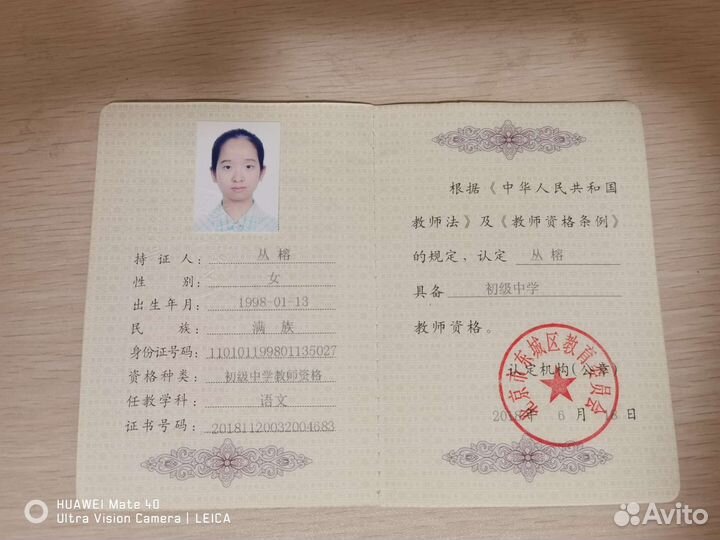 持证人：丛榕
性别：女
出生年月：1998-01-13
民族：满族
身份证号码：110101199801135027
资格种类：初级中学教师资格
任教学科：语文
证书号码：20181120032004683
根据《中华人民共和国
教师法》及《教师资格条例》
的规定，认定 丛榕
具备 初级中学
教师资格。
北京市东城区教育委员会
认定机构(公章)
2018年 6 月 13 日
HUAWEI Mate 40
Ultra Vision Camera | LEICA
Avito